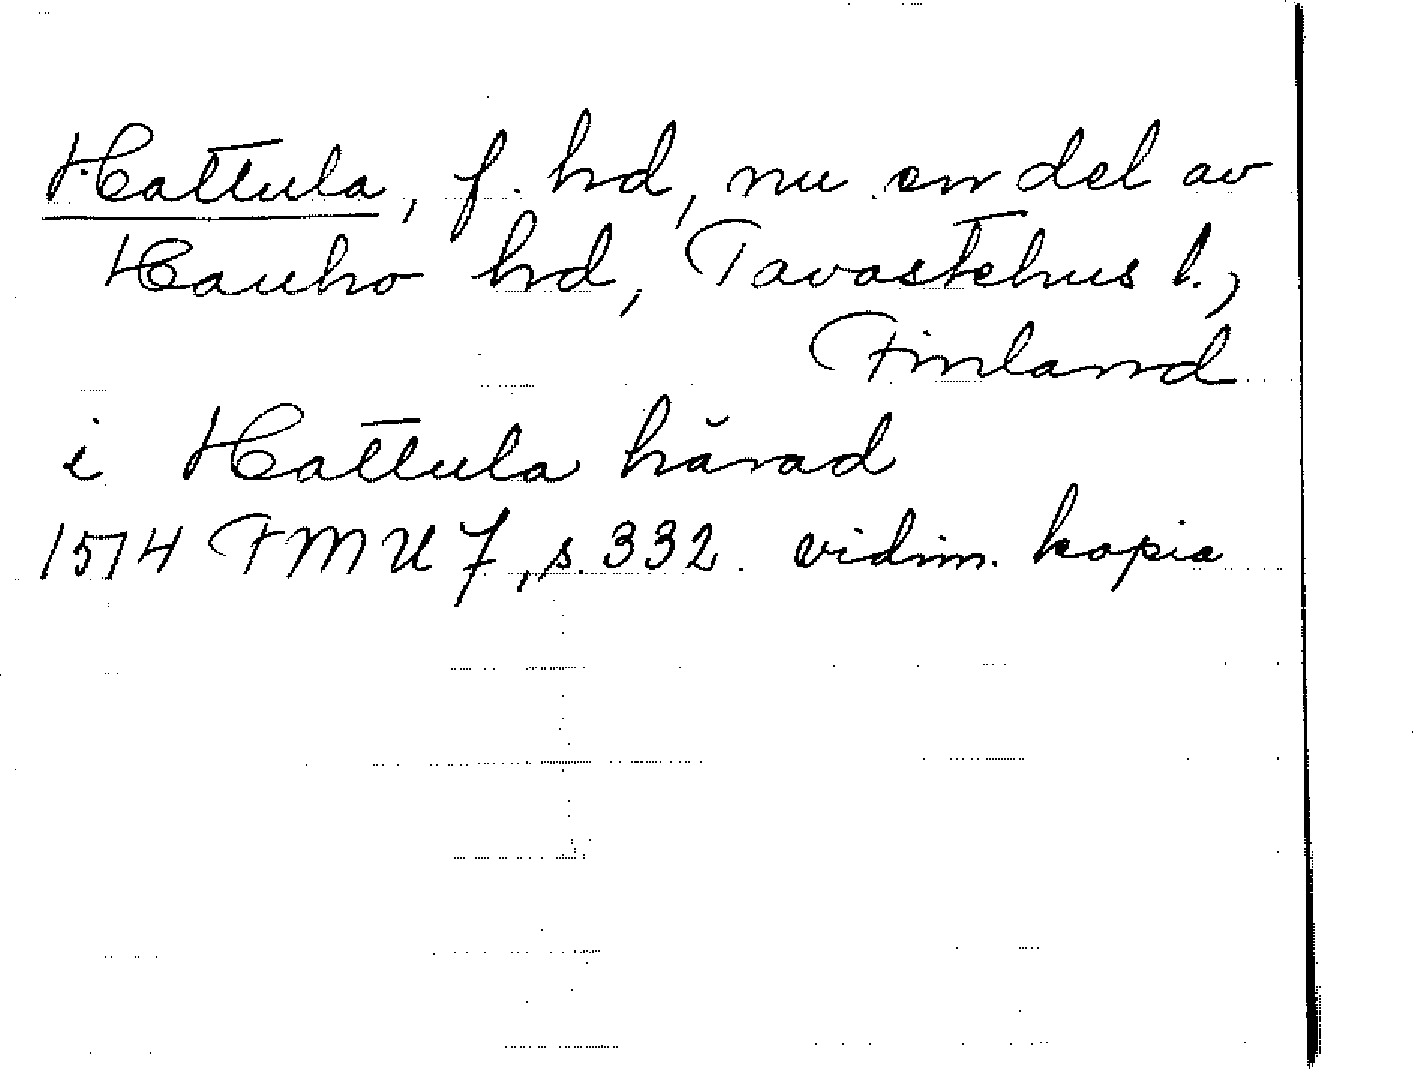 Hattula, f. hd, nu en del av
Hauho hd, Tavastehus l.,
Finland
i Hattula härad
1514 FMU 7, s. 332. vidim. kopia